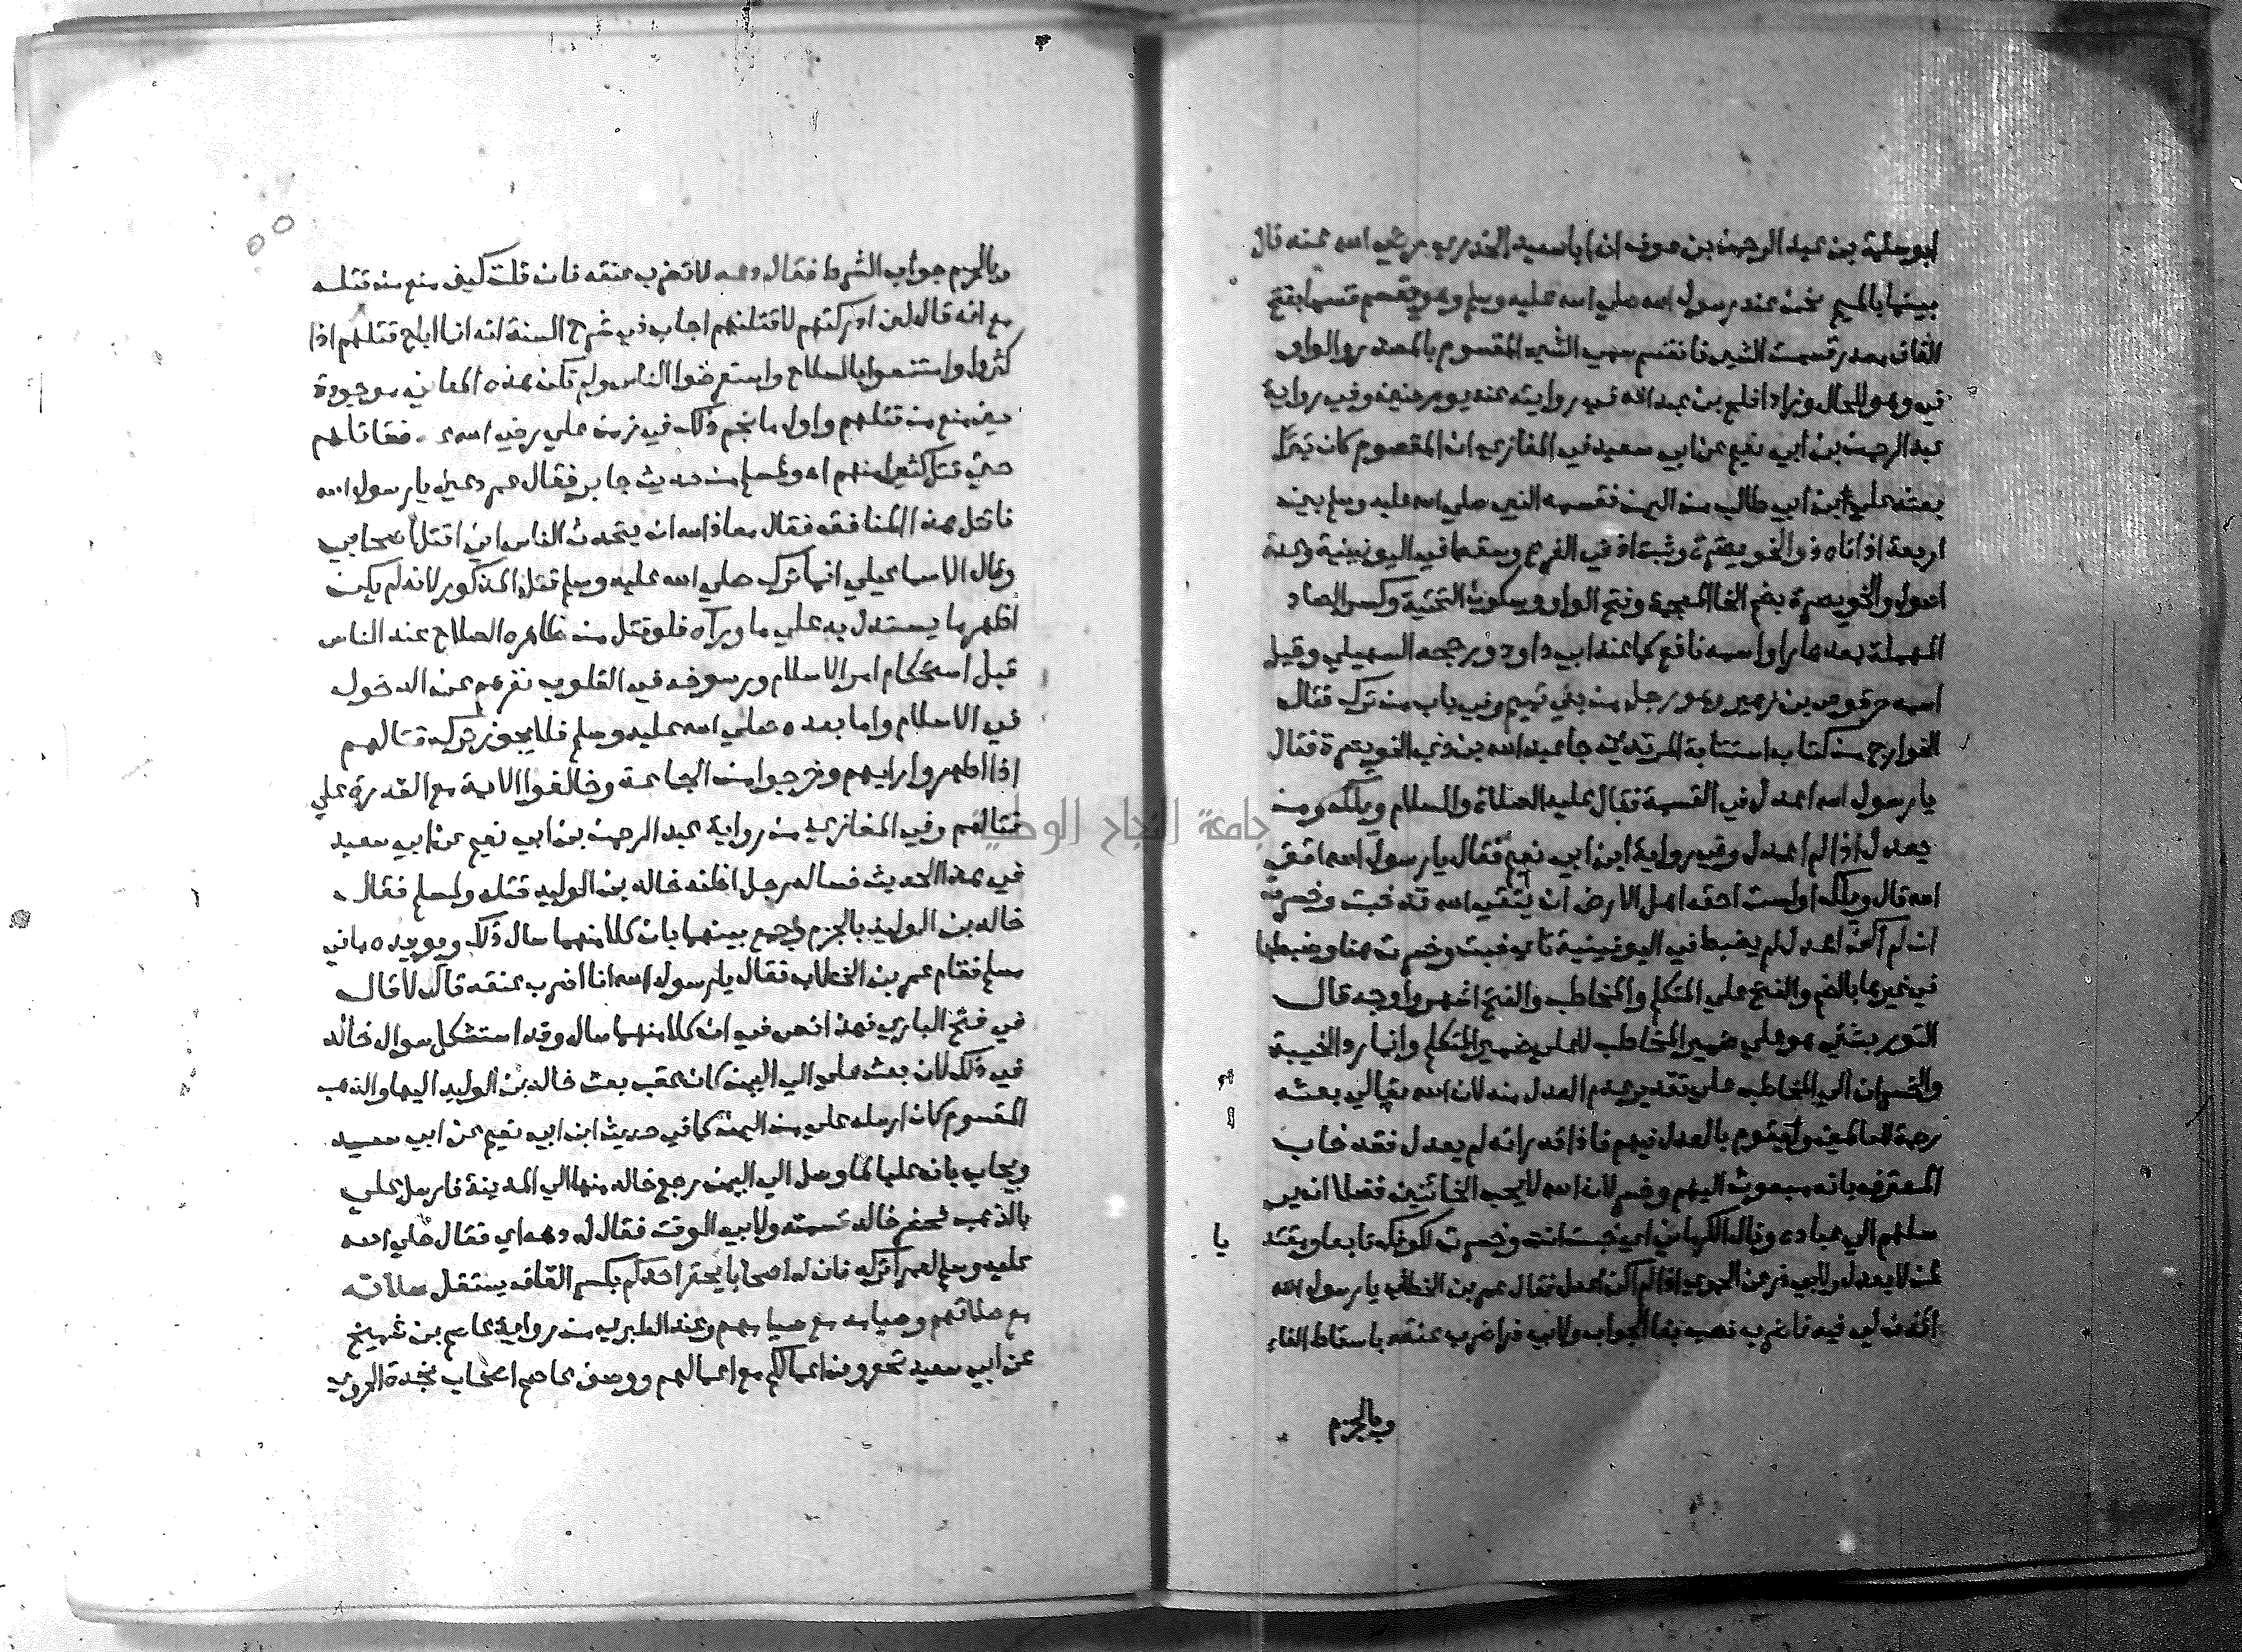 ابو سلمة بن عبد الرحمن بن عوف ان ابا سعيد الخدري رضي الله عنه قال
بينما بالميم نحن عند رسول الله صلي الله عليه وسلم وهو يقسم قسما بفتح
القاف مصدر قسمت الشي فانقسم سمي الشي المقسوم بالمصدر والواو
في وهو للحال وزاد افلح بن عبد الله في روايته عنه يوم حنين وفي رواية
عبد الرحمن بن ابي نعيم عن ابي سعيد في المغازي ان المقسوم كان تبرا
بعثه علي ابن ابي طالب من اليمن فقسمه النبي صلي الله عليه وسلم بين
اربعة اذ اتاه ذو الخويصرة وثبت اذ في الفرع وسقط في اليونينية وعدة
اصول والخويصرة بضم الخا المعجمة وفتح الواو وسكون التحتية وكسر الصاد
المهملة بعدها را واسمه نافع كما عند ابي داود ورجحه السهيلي وقيل
اسمه حرقوص بن زهير وهو رجل من بني تميم وفي باب من ترك قتال
الخوارج من كتاب استتابة المرتدين جا عبد الله بن ذي الخويصرة فقال
يا رسول الله اعدل في القسمة فقال عليه الصلاة والسلام ويلك ومن
يعدل اذا لم اعدل وفي رواية ابن ابي نعيم فقال يا رسول الله اتق
الله قال ويلك اولست احق اهل الارض ان يتقي الله قد خبت وخسرت
ان لم اكن اعدل لم يضبط في اليونينية تاي خبت وخسرت هنا وضبطها
في غيرها بالضم والفتح علي المتكلم والمخاطب والفتح اشهر واوجه قال
التوربشتي هو علي ضمير المخاطب لا علي ضمير المتكلم وانما رد الخيبة
والخسران الي المخاطب علي تقدير عدم العدل منه لان الله تعالي بعثه
رحمة للعالمين وليقوم بالعدل فيهم فاذا قدر انه لم يعدل فقد خاب
المعترف بانه مبعوث اليهم وخسر لان الله لا يحب الخائنين فضلا ان ير
سلهم الي عباده وقال الكرماني اي خبت انت وخسرت لكونك تابعا ويقتد
يا
عن لا يعدل ولابي ذر عن الحموي اذا لم اكن اعدل فقال عمر بن الخطاب يا رسول الله
ائذن لي فيه فاضرب نصب بفا الجواب ولابي ذر اضرب عنقه باسقاط الفاء
وبالجزم
وبالجزم جواب الشرط فقال دعه لا تضرب عنقه فان قلت كيف منع من قتله
مع انه قال لين ادركتهم لاقتلنهم اجاب في شرح السنة انه انما اباح قتلهم اذا
كثروا وامتنعوا بالسلاح واستعرضوا الناس ولم تكن هذه المعاني موجودة
حين منع من قتلهم واول ما نجم ذلك في زمن علي رضي الله عـ فقاتلهم
حتي قتل كثيرا منهم اه ولمسلم من حديث جابر فقال عمر دعني يا رسول الله
فاقتل هذا المنافق فقال معاذ الله ان يتحدث الناس اني اقتل اصحابي
وقال الاسماعيلي انما ترك صلي الله عليه وسلم قتل المذكور لانه لم يكن
اظهر ما يستدل به علي ما ورآه فلو قتل من ظاهره الصلاح عند الناس
قبل استحكام امر الاسلام ورسوخه في القلوب نفرهم عن الدخول
في الاسلام واما بعده صلي الله عليه وسلم فلا يجوز ترك قتالهم
اذا اظهروا رايهم وخرجوا من الجماعة وخالفوا الايمة مع القدرة علي
قتالهم وفي المغازي من رواية عبد الرحمن بن ابي نعيم عن ابي سعيد
في هذا الحديث فساله رجل اظنه خالد بن الوليد قتله ولمسلم فقال
خالد بن الوليد بالجزم وجمع بينهما بان كلا منهما سال ذلك ويويده ما في
مسلم فقام عمر بن الخطاب فقال يا رسول الله انا اضرب عنقه قال لا قال
في فتح الباري فهذا نص في ان كلا منهما سال وقد استشكل سوال خالد
في ذلك لان بعث علي الي اليمن كان عقب بعث خالد بن الوليد اليها والذهب
المقسوم كان ارسله علي من اليمن كما في حديث ابن ابي نعيم عن ابي سعيد
ويجاب بان عليا لما وصل الي اليمن رجع خالد منها الي المدينة فارسل علي
بالذهب فحضر خالد قسمته ولابي الوقت فقال له دعه اي فقال صلي الله
عليه وسلم لعمر اتركه فان له اصحابا يحقر احدكم بكسر القاف يستقل صلاته
مع صلاتهم وصيامه مع صيامهم وعند الطبري من رواية عاصم بن شميخ
عن ابي سعيد تحقرون اعمالكم مع اعمالهم ووصف عاصم اصحاب نجدة الحروري
جامعة النجاح الوطنية